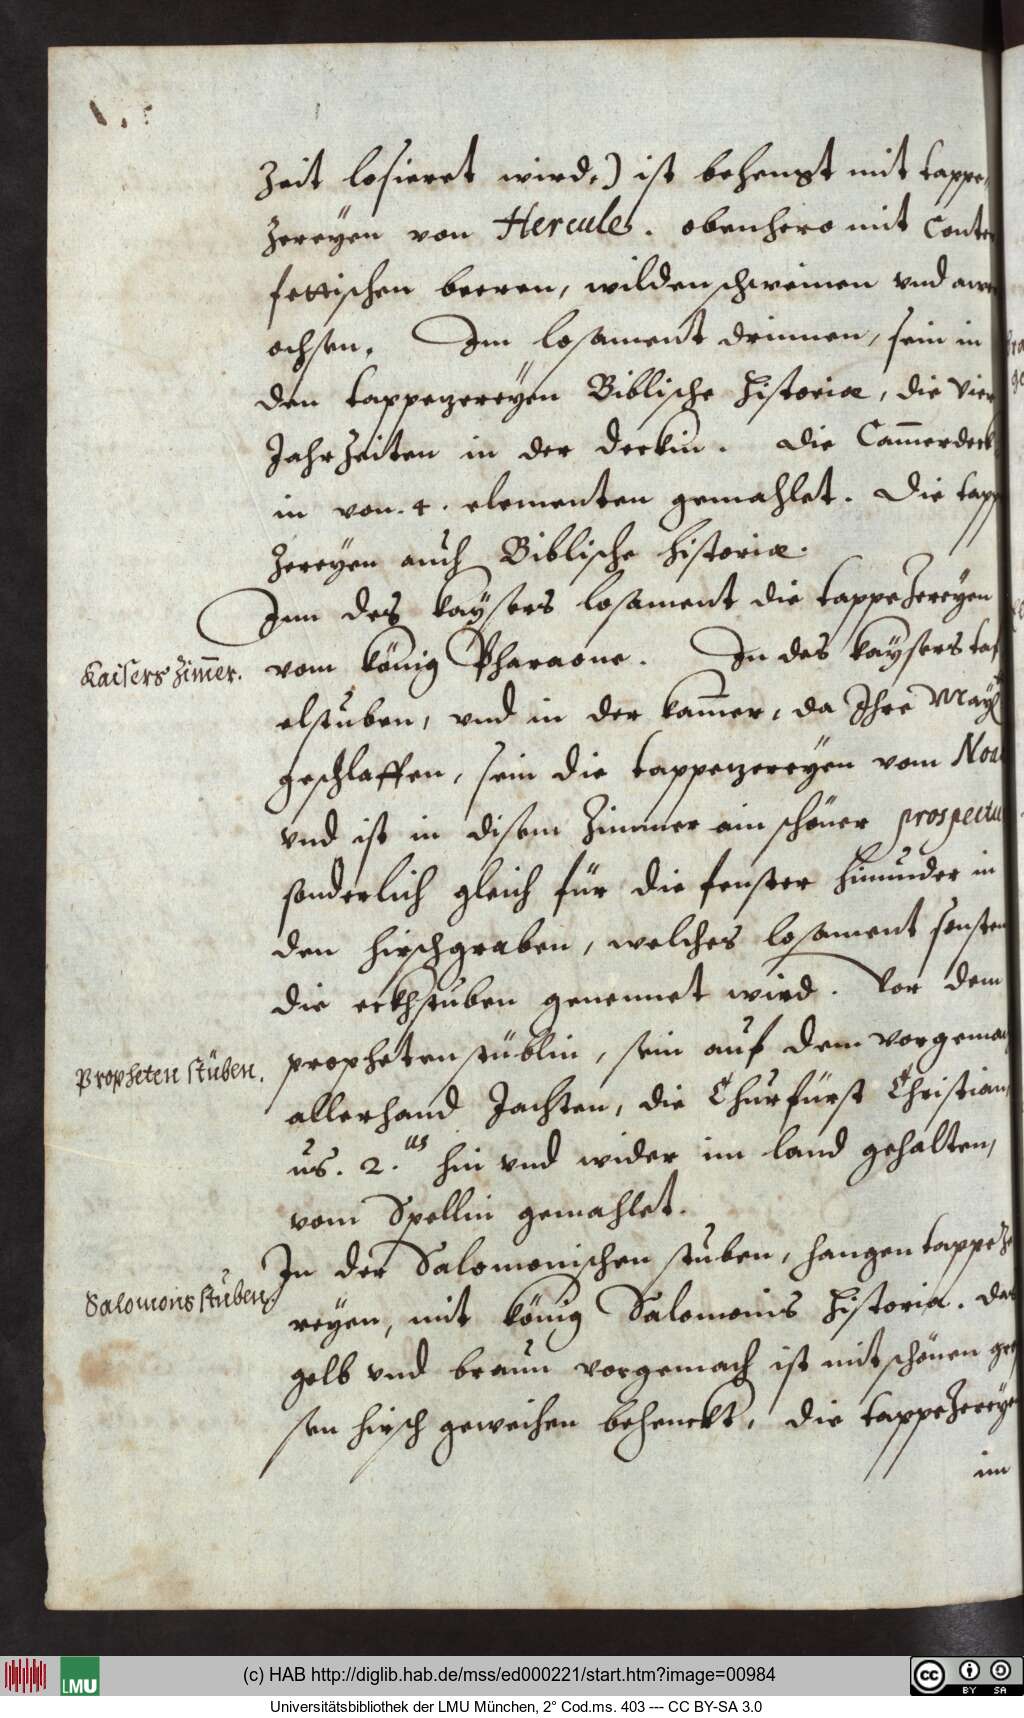 Zeit losieret wird.) ist behengt mit tappe,,
zereÿen von Hercules. obenhero mit Conte
fettischen beeren, wildenschweinen vnd awer
ochsen. Im losament drinnen, sein in
den tappezereÿen Biblische historiæ, die vier
Jahrzeiten in der deckin. die Cam̄erdeck
in von .4. elementen gemahlet. Die tapp
zereÿen auch Biblische historiæ.
Inn des kaÿsers losament die tappezereÿen
Kaisers Zim̄er.
vom könig Pharaone. In des kaÿsers taf
elstuben, vnd in der kam̄er, da Ihre Maÿt
geschlaffen, sein die tappezereÿen vom Noa
vnd ist in disem Zimmer ein schöner prospectu
sonderlich gleich für die fenster hinunder in
den hirschgraben, welches losament sonsten
die eckhstuben genennet wird. Vor dem
Propheten stüben.
propheten stüblin, sein auf dem vorgemach
allerhand Jachten, die Churfürst Christian,
us. 2.us hin vnd wider im land gehalten,
vom Spellin gemahlet.
In der Salomonischen stuben, hangen tappeze
Salomons stuben
reÿen, mit könig Salomonis historia. das
gelb vnd braun vorgemach ist mit schönen gros
sen hirsch geweihen behenckt. die tappezereÿe
im
(c) HAB http://diglib.hab.de/mss/ed000221/start.htm?image=00984
LMU
cc BY SA
Universitätsbibliothek der LMU München, 2° Cod.ms. 403 --- CC BY-SA 3.0